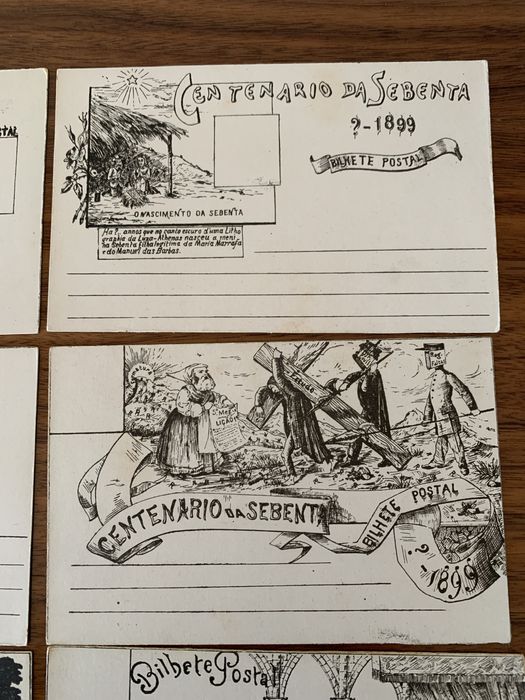 STAL
CENTENARIO DA SEBENTA
?-1899
BILHETE POSTAL
O NASCIMENTO DA SEBENTA
Ha ?.. annos que no canto escuro d'uma Litho
graphia da Lusa-Athenas nasceu a meni,
na Sebenta filha legitima da Maria Marrafa
e do Manuel das Barbas.
LIÇÃO
SEBENTA
CENTENARIO DA SEBENTA
BILHETE POSTAL
?-1899
Bilhete Postal